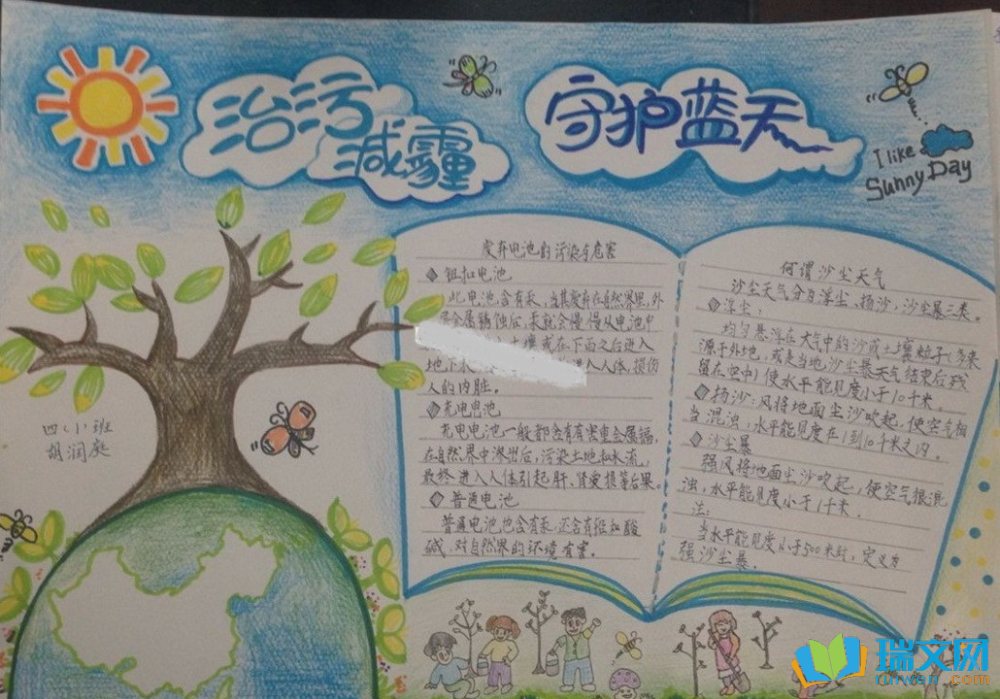 治污
减霾
守护蓝天
I like
Sunny Day
四(1)班
胡润庭
废弃电池的污染与危害
钮扣电池
此电池含有汞,当其废弃在自然界里,外
金属锈蚀后,汞就会慢慢从电池中
土壤或在下雨之后进入
地下水 进入人体,损伤
人的内脏。
充电电池
充电电池一般都含有有害重金属镉,
在自然界中渗出后,污染土地和水流,
最终进入人体引起肝、肾受损等后果。
普通电池
普通电池也含有汞,还含有铅和酸
碱,对自然界的环境有害。
何谓沙尘天气
沙尘天气分为浮尘、扬沙、沙尘暴三类。
浮尘:
均匀悬浮在大气中的沙或土壤粒子(多来
源于外地,或是当地沙尘暴天气结束后残
留在空中)使水平能见度小于10千米。
扬沙:风将地面尘沙吹起,使空气相
当混浊,水平能见度在1到10千米之内。
沙尘暴
强风将地面尘沙吹起,使空气很混
浊,水平能见度小于1千米。
法:
当水平能见度小于500米时,定义为
强沙尘暴。
瑞文网
ruiwen.com